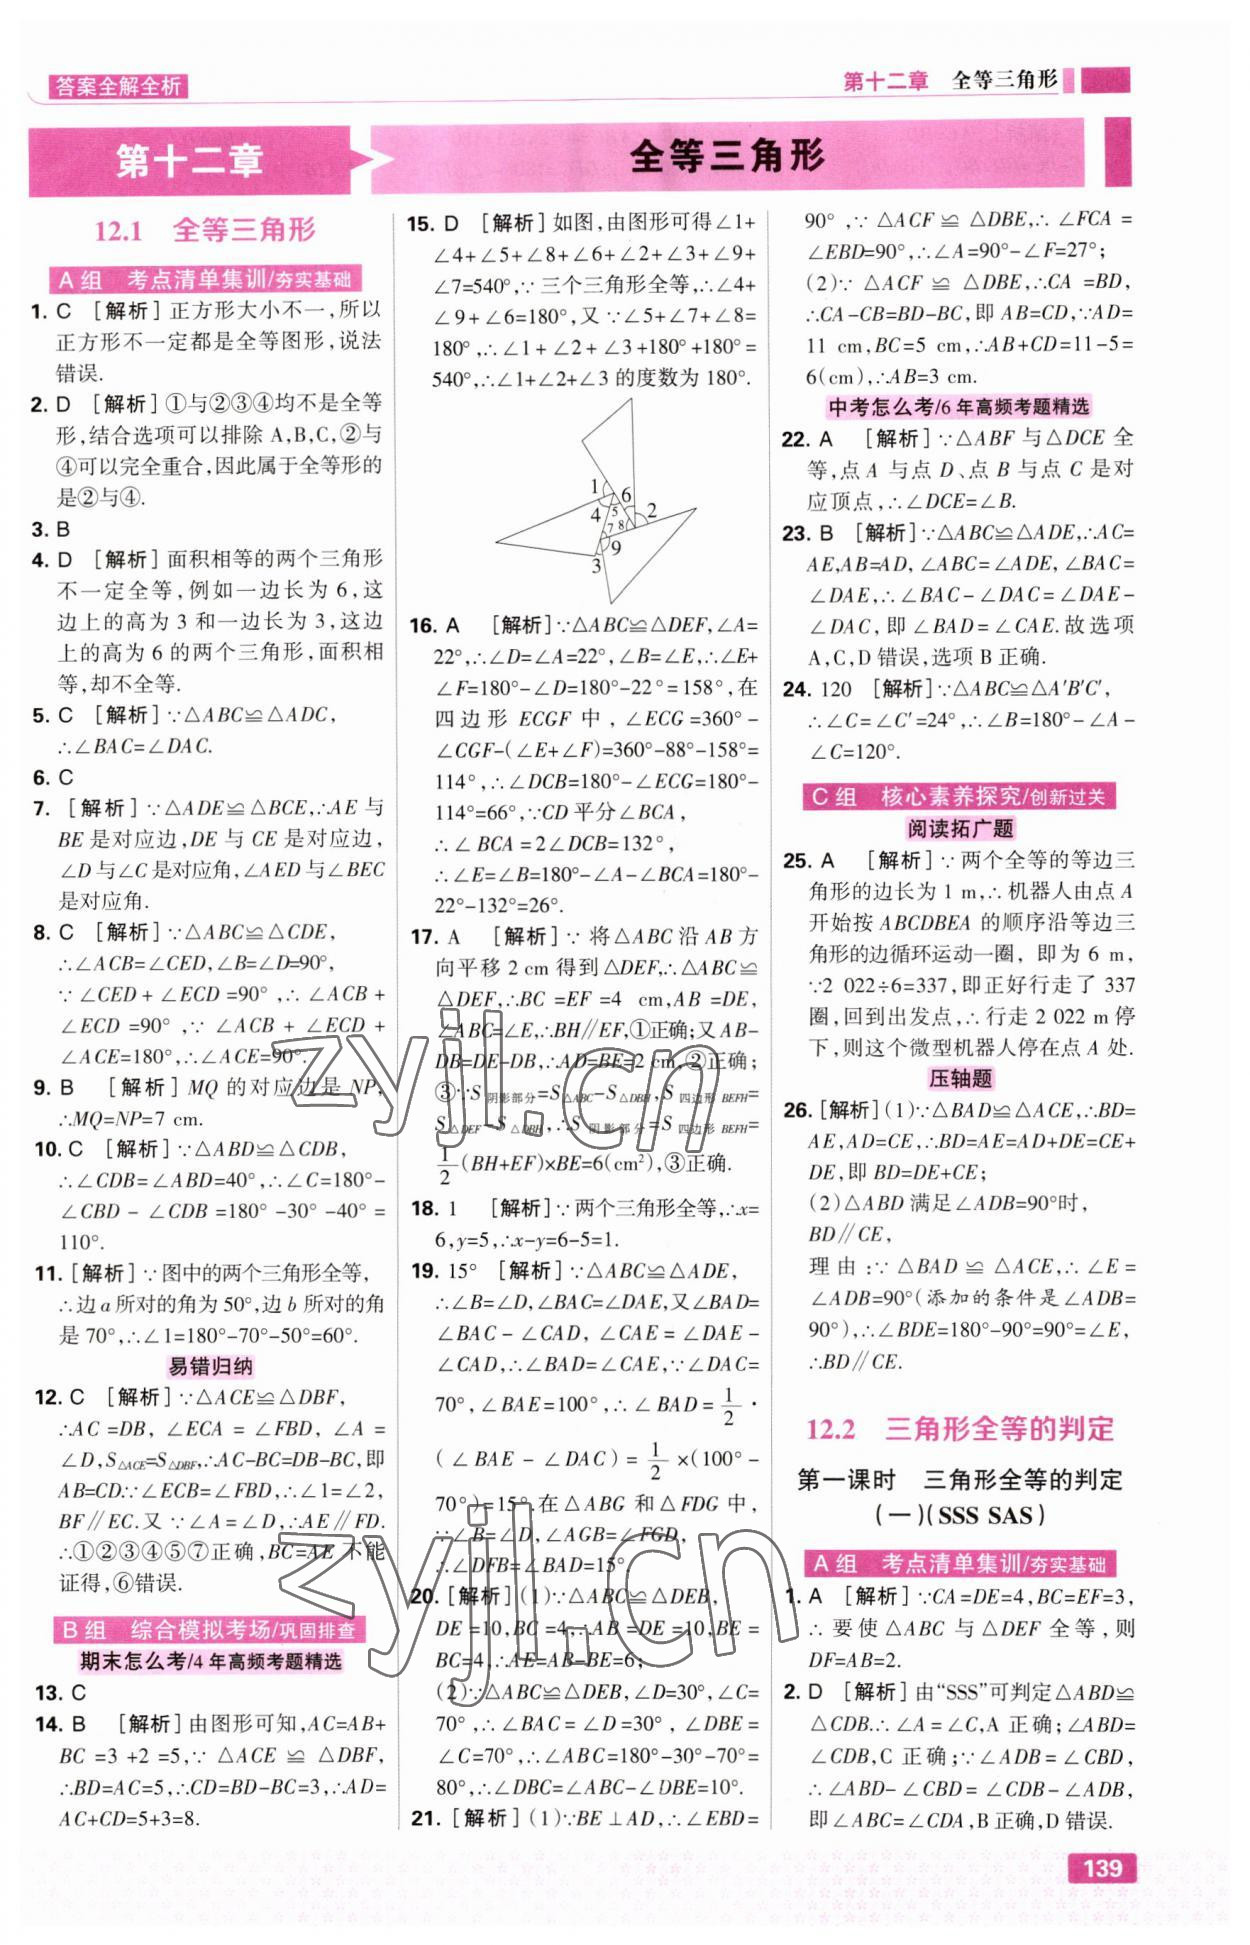 答案全解全析
第十二章 全等三角形
第十二章
全等三角形
12.1 全等三角形
A组 考点清单集训/夯实基础
1. C [解析]正方形大小不一,所以
正方形不一定都是全等图形,说法
错误.
2. D [解析]①与②③④均不是全等
形,结合选项可以排除 A,B,C,②与
④可以完全重合,因此属于全等形的
是②与④.
3. B
4. D [解析]面积相等的两个三角形
不一定全等,例如一边长为 6,这
边上的高为 3 和一边长为 3,这边
上的高为 6 的两个三角形,面积相
等,却不全等.
5. C [解析]∵△ABC≌△ADC,
∴∠BAC=∠DAC.
6. C
7. [解析]∵△ADE≌△BCE,∴AE 与
BE 是对应边,DE 与 CE 是对应边,
∠D 与∠C 是对应角,∠AED 与∠BEC
是对应角.
8. C [解析]∵△ABC≌△CDE,
∴∠ACB=∠CED,∠B=∠D=90°,
∵∠CED+∠ECD=90°,∴∠ACB+
∠ECD=90°,∵∠ACB+∠ECD+
∠ACE=180°,∴∠ACE=90°.
9. B [解析]MQ 的对应边是 NP,
∴MQ=NP=7 cm.
10. C [解析]∵△ABD≌△CDB,
∴∠CDB=∠ABD=40°,∴∠C=180°-
∠CBD-∠CDB=180°-30°-40°=
110°.
11. [解析]∵图中的两个三角形全等,
∴边 a 所对的角为 50°,边 b 所对的角
是 70°,∴∠1=180°-70°-50°=60°.
易错归纳
12. C [解析]∵△ACE≌△DBF,
∴AC=DB,∠ECA=∠FBD,∠A=
∠D,S△ACE=S△DBF,∴AC-BC=DB-BC,即
AB=CD∵∠ECB=∠FBD,∴∠1=∠2,
BF∥EC.又∵∠A=∠D,∴AE∥FD.
∴①②③④⑤⑦正确,BC=AE 不能
证得,⑥错误.
B组 综合模拟考场/巩固排查
期末怎么考/4 年高频考题精选
13. C
14. B [解析]由图形可知,AC=AB+
BC=3+2=5,∵△ACE≌△DBF,
∴BD=AC=5,∴CD=BD-BC=3,∴AD=
AC+CD=5+3=8.
15. D [解析]如图,由图形可得∠1+
∠4+∠5+∠8+∠6+∠2+∠3+∠9+
∠7=540°,∵三个三角形全等,∴∠4+
∠9+∠6=180°,又∵∠5+∠7+∠8=
180°,∴∠1+∠2+∠3+180°+180°=
540°,∴∠1+∠2+∠3 的度数为 180°.
1
6
4
5
2
7
8
9
3
16. A [解析]∵△ABC≌△DEF,∠A=
22°,∴∠D=∠A=22°,∠B=∠E,∴∠E+
∠F=180°-∠D=180°-22°=158°,在
四边形 ECGF 中,∠ECG=360°-
∠CGF-(∠E+∠F)=360°-88°-158°=
114°,∴∠DCB=180°-∠ECG=180°-
114°=66°,∵CD 平分∠BCA,
∴∠BCA=2∠DCB=132°,
∴∠E=∠B=180°-∠A-∠BCA=180°-
22°-132°=26°.
17. A [解析]∵将△ABC 沿 AB 方
向平移 2 cm 得到△DEF,∴△ABC≌
△DEF,∴BC=EF=4 cm,AB=DE,
∠ABC=∠E,∴BH∥EF,①正确;又 AB-
DB=DE-DB,∴AD=BE=2 cm,②正确;
③∵S阴影部分=S△ABC-S△DBH,S四边形BEFH=
S△DEF-S△DBH,∴S阴影部分=S四边形BEFH=
1/2(BH+EF)×BE=6(cm²),③正确.
18. 1 [解析]∵两个三角形全等,∴x=
6,y=5,∴x-y=6-5=1.
19. 15° [解析]∵△ABC≌△ADE,
∴∠B=∠D,∠BAC=∠DAE,又∠BAD=
∠BAC-∠CAD,∠CAE=∠DAE-
∠CAD,∴∠BAD=∠CAE,∵∠DAC=
70°,∠BAE=100°,∴∠BAD=1/2·
(∠BAE-∠DAC)=1/2×(100°-
70°)=15°.在△ABG 和△FDG 中,
∵∠B=∠D,∠AGB=∠FGD,
∴∠DFB=∠BAD=15°.
20. [解析](1)∵△ABC≌△DEB,
DE=10,BC=4,∴AB=DE=10,BE=
BC=4,∴AE=AB-BE=6;
(2)∵△ABC≌△DEB,∠D=30°,∠C=
70°,∴∠BAC=∠D=30°,∠DBE=
∠C=70°,∴∠ABC=180°-30°-70°=
80°,∴∠DBC=∠ABC-∠DBE=10°.
21. [解析](1)∵BE⊥AD,∴∠EBD=
90°,∵△ACF≌△DBE,∴∠FCA=
∠EBD=90°,∴∠A=90°-∠F=27°;
(2)∵△ACF≌△DBE,∴CA=BD,
∴CA-CB=BD-BC,即 AB=CD,∵AD=
11 cm,BC=5 cm,∴AB+CD=11-5=
6(cm),∴AB=3 cm.
中考怎么考/6 年高频考题精选
22. A [解析]∵△ABF 与△DCE 全
等,点 A 与点 D、点 B 与点 C 是对
应顶点,∴∠DCE=∠B.
23. B [解析]∵△ABC≌△ADE,∴AC=
AE,AB=AD,∠ABC=∠ADE,∠BAC=
∠DAE,∴∠BAC-∠DAC=∠DAE-
∠DAC,即∠BAD=∠CAE.故选项
A,C,D 错误,选项 B 正确.
24. 120 [解析]∵△ABC≌△A′B′C′,
∴∠C=∠C′=24°,∴∠B=180°-∠A-
∠C=120°.
C组 核心素养探究/创新过关
阅读拓广题
25. A [解析]∵两个全等的等边三
角形的边长为 1 m,∴机器人由点 A
开始按 ABCDBEA 的顺序沿等边三
角形的边循环运动一圈,即为 6 m,
∵2 022÷6=337,即正好行走了 337
圈,回到出发点,∴行走 2 022 m 停
下,则这个微型机器人停在点 A 处.
压轴题
26. [解析](1)∵△BAD≌△ACE,∴BD=
AE,AD=CE,∴BD=AE=AD+DE=CE+
DE,即 BD=DE+CE;
(2)△ABD 满足∠ADB=90°时,
BD∥CE,
理由:∵△BAD≌△ACE,∴∠E=
∠ADB=90°(添加的条件是∠ADB=
90°),∴∠BDE=180°-90°=90°=∠E,
∴BD∥CE.
12.2 三角形全等的判定
第一课时 三角形全等的判定
(一)(SSS SAS)
A组 考点清单集训/夯实基础
1. A [解析]∵CA=DE=4,BC=EF=3,
∴要使△ABC 与△DEF 全等,则
DF=AB=2.
2. D [解析]由“SSS”可判定△ABD≌
△CDB.∴∠A=∠C,A 正确;∠ABD=
∠CDB,C 正确;∵∠ADB=∠CBD,
∴∠ABD-∠CBD=∠CDB-∠ADB,
即∠ABC=∠CDA,B 正确,D 错误.
139
zyjl.cn
zyjl.cn